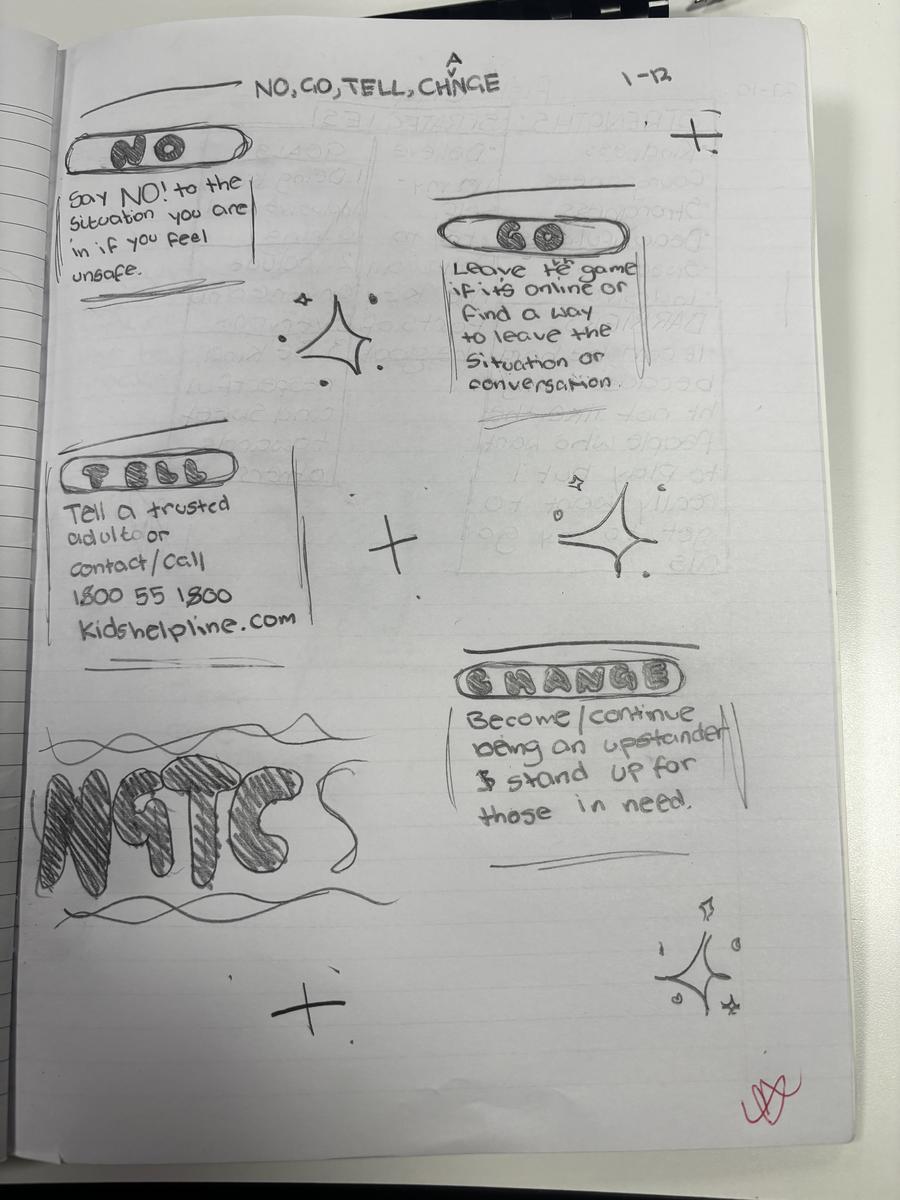 NO, GO, TELL, CHANGE
1-12
NO
Say NO! to the
situation you are
in if you feel
unsafe.
GO
Leave the game
if its online or
find a way
to leave the
situation or
conversation.
TELL
Tell a trusted
adult or
contact/call
1800 55 1800
kidshelpline.com
CHANGE
Become/continue
being an upstander
& stand up for
those in need.
NGTC